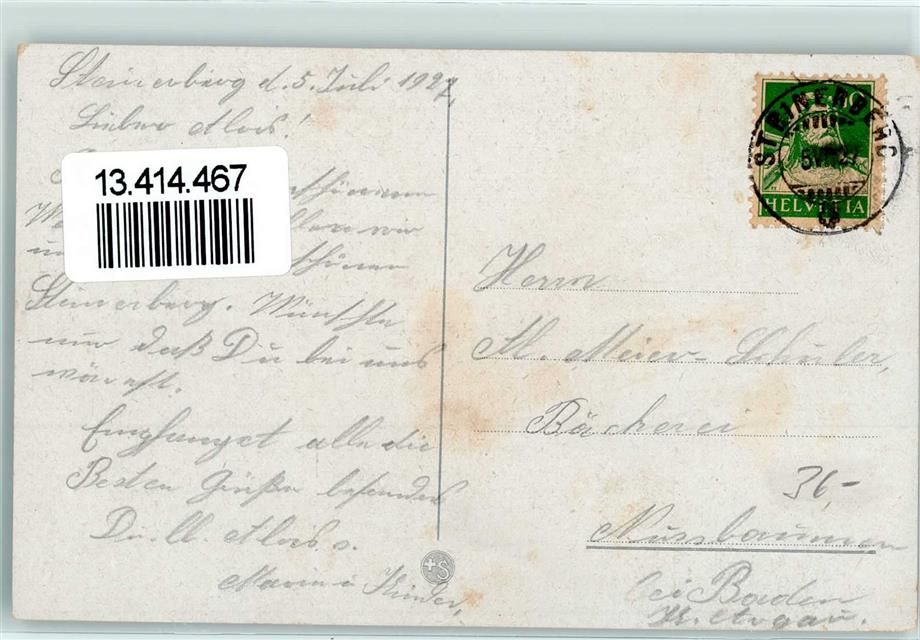 Steinerberg d. 5. Juli 1927,
Lieber Alois!
13.414.467
schönen
wir
schönen
Steinerberg. Wünschte
nur daß Du bei uns
wärest.
Empfanget alle die
Besten Grüße besonders
Du. lb. Alois v.
Marie u Kinder,
STEINERBERG
HELVETIA
10
Herrn
Al. Meier-Schuler,
Bäckerei
36,-
Nussbaumen
bei Baden
Kt. Argau.
+S